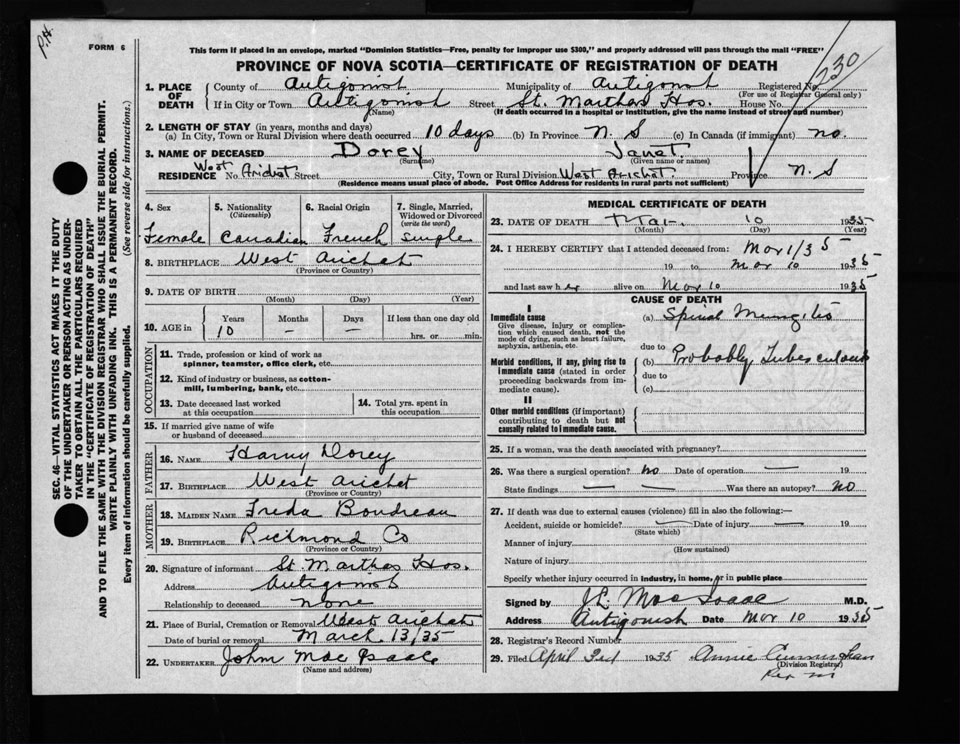 P.H.
FORM 6
This form if placed in an envelope, marked "Dominion Statistics—Free, penalty for improper use $300," and properly addressed will pass through the mail "FREE"
PROVINCE OF NOVA SCOTIA—CERTIFICATE OF REGISTRATION OF DEATH
230
1. PLACE OF DEATH County of Antigonish Municipality of Antigonish Registered No.
(For use of Registrar General only)
If in City or Town Antigonish Street St. Marthas Hos. House No.
(Name) (If death occurred in a hospital or institution, give the name instead of street and number)
2. LENGTH OF STAY (in years, months and days)
(a) In City, Town or Rural Division where death occurred 10 days (b) In Province N. S (c) In Canada (if immigrant) no.
3. NAME OF DECEASED Dorey Janet
(Surname) (Given name or names)
RESIDENCE No. West Arichat Street City, Town or Rural Division West Arichat Province N. S
(Residence means usual place of abode. Post Office Address for residents in rural parts not sufficient)
SEC. 46—VITAL STATISTICS ACT MAKES IT THE DUTY
OF THE UNDERTAKER OR PERSON ACTING AS UNDER-
TAKER TO OBTAIN ALL THE PARTICULARS REQUIRED
IN THE "CERTIFICATE OF REGISTRATION OF DEATH"
AND TO FILE THE SAME WITH THE DIVISION REGISTRAR WHO SHALL ISSUE THE BURIAL PERMIT.
WRITE PLAINLY WITH UNFADING INK. THIS IS A PERMANENT RECORD.
Every item of information should be carefully supplied. (See reverse side for instructions.)
4. Sex 5. Nationality (Citizenship) 6. Racial Origin 7. Single, Married, Widowed or Divorced (write the word)
Female Canadian French single
8. BIRTHPLACE West Arichat
(Province or Country)
9. DATE OF BIRTH
(Month) (Day) (Year)
10. AGE in Years Months Days If less than one day old
10 – – hrs. or min.
OCCUPATION
11. Trade, profession or kind of work as
spinner, teamster, office clerk, etc.
12. Kind of industry or business, as cotton-
mill, lumbering, bank, etc.
13. Date deceased last worked at this occupation
14. Total yrs. spent in this occupation
15. If married give name of wife
or husband of deceased
FATHER
16. NAME Harry Dorey
17. BIRTHPLACE West Arichat
(Province or Country)
MOTHER
18. MAIDEN NAME Freda Boudreau
19. BIRTHPLACE Richmond Co
(Province or Country)
20. Signature of informant St. Marthas Hos.
Address Antigonish
Relationship to deceased none
21. Place of Burial, Cremation or Removal West Arichat
Date of burial or removal March 13/35
22. UNDERTAKER John Mac Isaac
(Name and address)
MEDICAL CERTIFICATE OF DEATH
23. DATE OF DEATH Mar. 10 1935
(Month) (Day) (Year)
24. I HEREBY CERTIFY that I attended deceased from: Mar 1/35
19 to Mar 10 1935
and last saw her alive on Mar 10 1935
CAUSE OF DEATH
I
Immediate cause (a) Spinal Meningitis
Give disease, injury or complica-
tion which caused death, not the
mode of dying, such as heart failure,
asphyxia, asthenia, etc.
due to
Morbid conditions, if any, giving rise to (b) Probably Tuberculous
immediate cause (stated in order
proceeding backwards from im-
mediate cause).
due to
(c)
II
Other morbid conditions (if important)
contributing to death but not
causally related to immediate cause.
25. If a woman, was the death associated with pregnancy?
26. Was there a surgical operation? no Date of operation — 19
State findings — Was there an autopsy? no
27. If death was due to external causes (violence) fill in also the following:—
Accident, suicide or homicide? — Date of injury — 19
(State which)
Manner of injury
(How sustained)
Nature of injury
Specify whether injury occurred in industry, in home, or in public place
Signed by J.L. MacIsaac M.D.
Address Antigonish Date Mar 10 1935
28. Registrar's Record Number
29. Filed April 3rd 1935 Annie Cunningham
(Division Registrar)